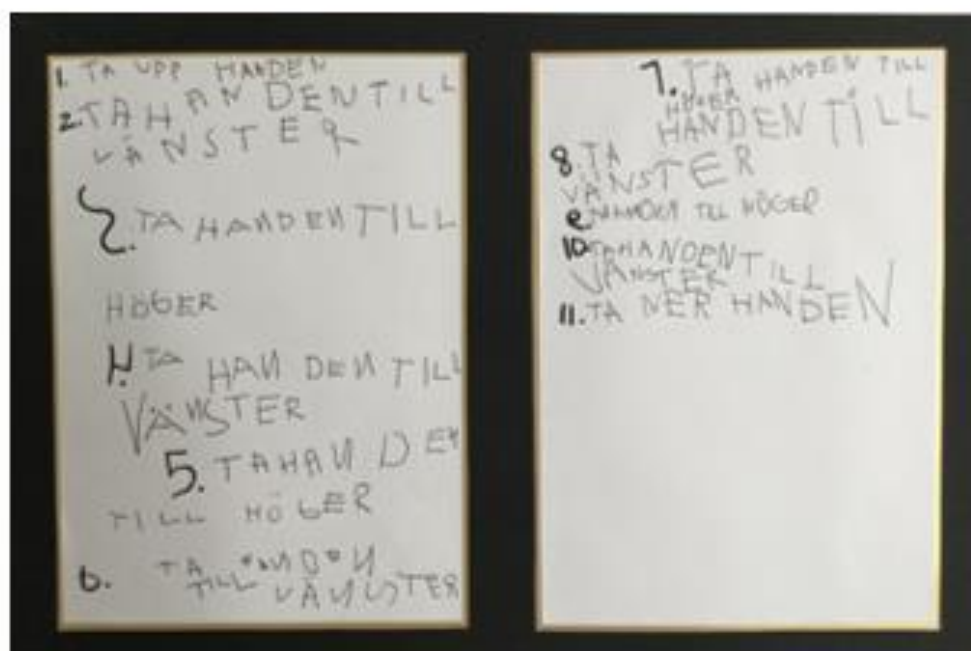 1. TA UPP HANDEN
2. TA HANDEN TILL
VÄNSTER
3. TA HANDEN TILL
HÖGER
4. TA HANDEN TILL
VÄNSTER
5. TA HANDEN
TILL HÖGER
6. TA
TILL VÄNSTER
7. TA HANDEN TILL
HÖGER
HANDEN TILL
8. TA
VÄNSTER
TILL HÖGER
10. TA HANDEN TILL
VÄNSTER
11. TA NER HANDEN